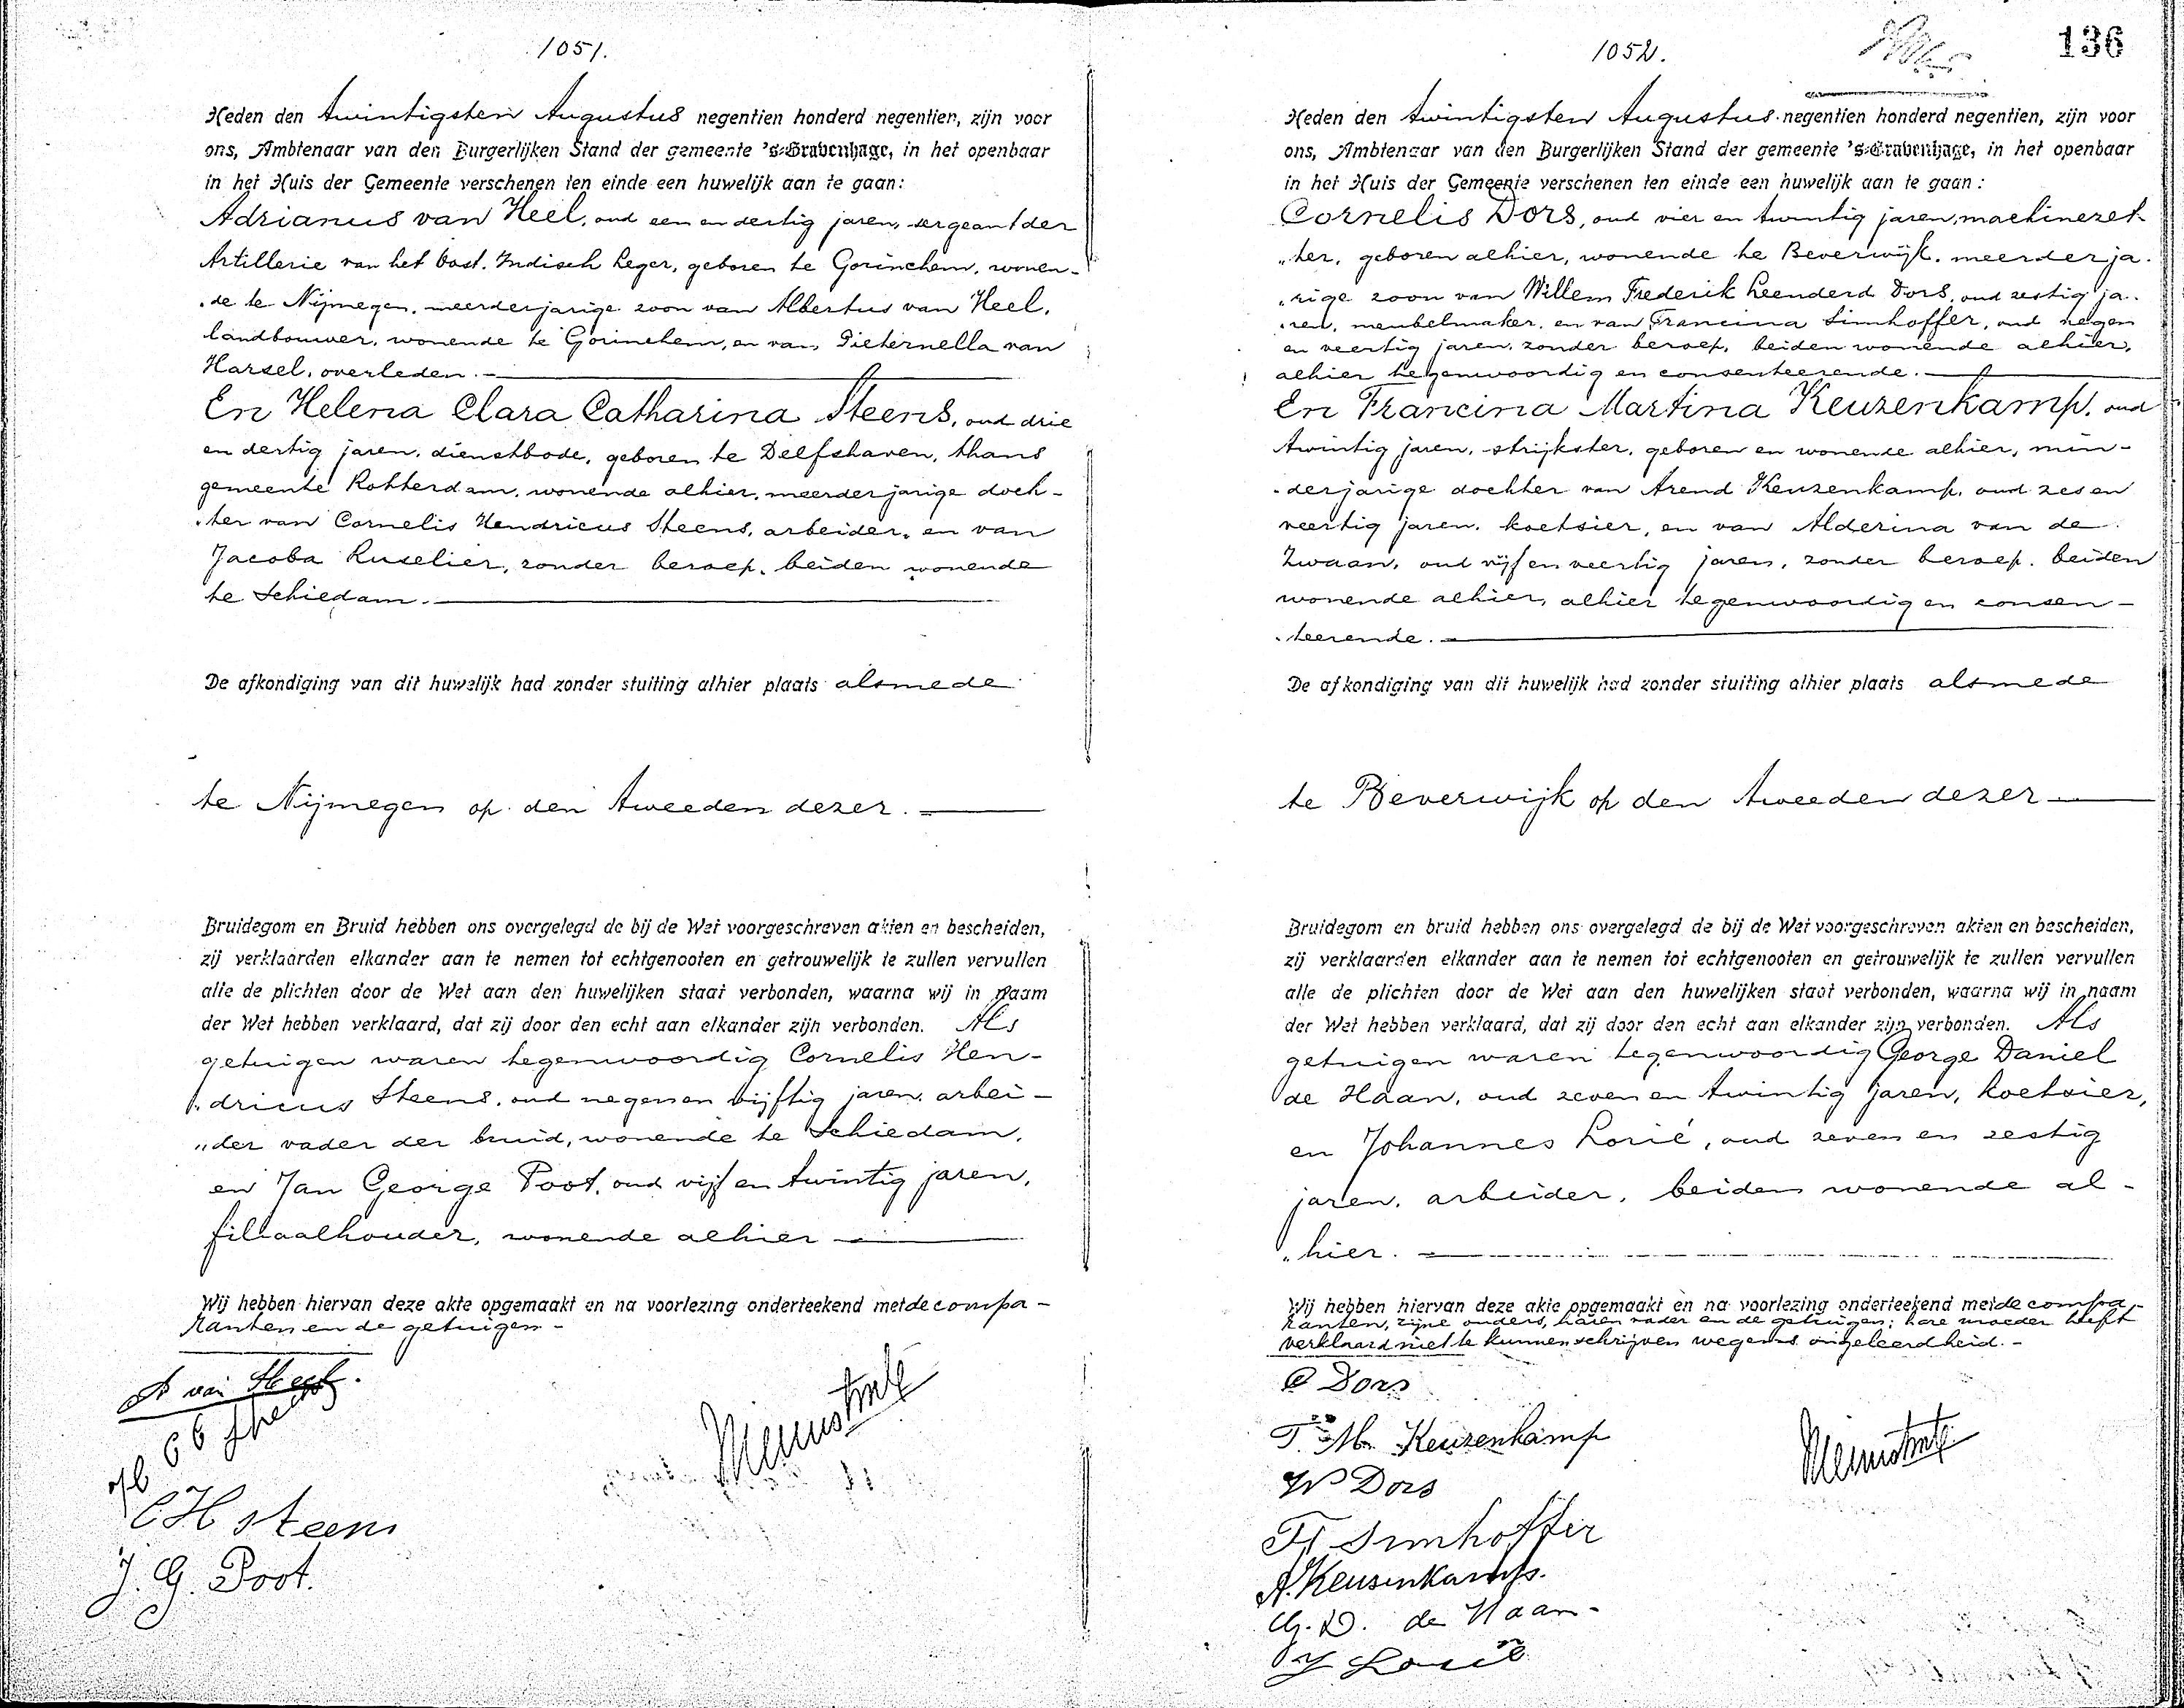 1051.
Heden den twintigsten Augustus negentien honderd negentien, zijn voor
ons, Ambtenaar van den Burgerlijken Stand der gemeente 's-Gravenhage, in het openbaar
in het Huis der Gemeente verschenen ten einde een huwelijk aan te gaan:
Adrianus van Heel, oud een en dertig jaren, sergeant der
Artillerie van het Oost. Indisch leger, geboren te Gorinchem, wonen-
de te Nijmegen, meerderjarige zoon van Albertus van Heel,
landbouwer, wonende te Gorinchem, en van Pieternella van
Harsel, overleden.
En Helena Clara Catharina Steens, oud drie
en dertig jaren, dienstbode, geboren te Delfshaven, thans
gemeente Rotterdam, wonende alhier, meerderjarige doch-
ter van Cornelis Hendricus Steens, arbeider, en van
Jacoba Ruselier, zonder beroep, beiden wonende
te Schiedam.
De afkondiging van dit huwelijk had zonder stuiting alhier plaats alsmede
te Nijmegen op den tweeden dezer.
Bruidegom en Bruid hebben ons overgelegd de bij de Wet voorgeschreven akten en bescheiden,
zij verklaarden elkander aan te nemen tot echtgenooten en getrouwelijk te zullen vervullen
alle de plichten door de Wet aan den huwelijken staat verbonden, waarna wij in naam
der Wet hebben verklaard, dat zij door den echt aan elkander zijn verbonden. Als
getuigen waren tegenwoordig Cornelis Hen-
dricus Steens, oud negen en vijftig jaren, arbei-
der vader der bruid, wonende te Schiedam,
en Jan George Poot, oud vijf en twintig jaren,
filiaalhouder, wonende alhier
Wij hebben hiervan deze akte opgemaakt en na voorlezing onderteekend met de compa-
ranten en de getuigen.
A van Heel.
CH Steens
J. G. Poot.
136
1052.
Heden den twintigsten Augustus negentien honderd negentien, zijn voor
ons, Ambtenaar van den Burgerlijken Stand der gemeente 's-Gravenhage, in het openbaar
in het Huis der Gemeente verschenen ten einde een huwelijk aan te gaan:
Cornelis Dors, oud vier en twintig jaren, machinezet-
ter, geboren alhier, wonende te Beverwijk, meerderja-
rige zoon van Willem Frederik Leenderd Dors, oud zestig ja-
ren, meubelmaker, en van Francina Simhoffer, oud negen
en veertig jaren, zonder beroep, beiden wonende alhier,
alhier tegenwoordig en consenteerende.
En Francina Martina Keuzenkamp, oud
twintig jaren, strijkster, geboren en wonende alhier, min-
derjarige dochter van Arend Keuzenkamp, oud zes en
veertig jaren, koetsier, en van Alderina van de
Zwaan, oud vijf en veertig jaren, zonder beroep, beiden
wonende alhier, alhier tegenwoordig en consen-
teerende.
De afkondiging van dit huwelijk had zonder stuiting alhier plaats alsmede
te Beverwijk op den tweeden dezer
Bruidegom en bruid hebben ons overgelegd de bij de Wet voorgeschreven akten en bescheiden,
zij verklaarden elkander aan te nemen tot echtgenooten en getrouwelijk te zullen vervullen
alle de plichten door de Wet aan den huwelijken staat verbonden, waarna wij in naam
der Wet hebben verklaard, dat zij door den echt aan elkander zijn verbonden. Als
getuigen waren tegenwoordig George Daniel
de Haan, oud zeven en twintig jaren, koetsier,
en Johannes Lorié, oud zeven en zestig
jaren, arbeider, beiden wonende al-
hier.
Wij hebben hiervan deze akte opgemaakt en na voorlezing onderteekend met de compa-
ranten, zijne ouders, haren vader en de getuigen; hare moeder heeft
verklaard niet te kunnen schrijven wegens ongeleerdheid.
C Dors
F. M. Keuzenkamp
W Dors
Fr Simhoffer
A. Keusenkamp.
G. D. de Haan
J Lorié